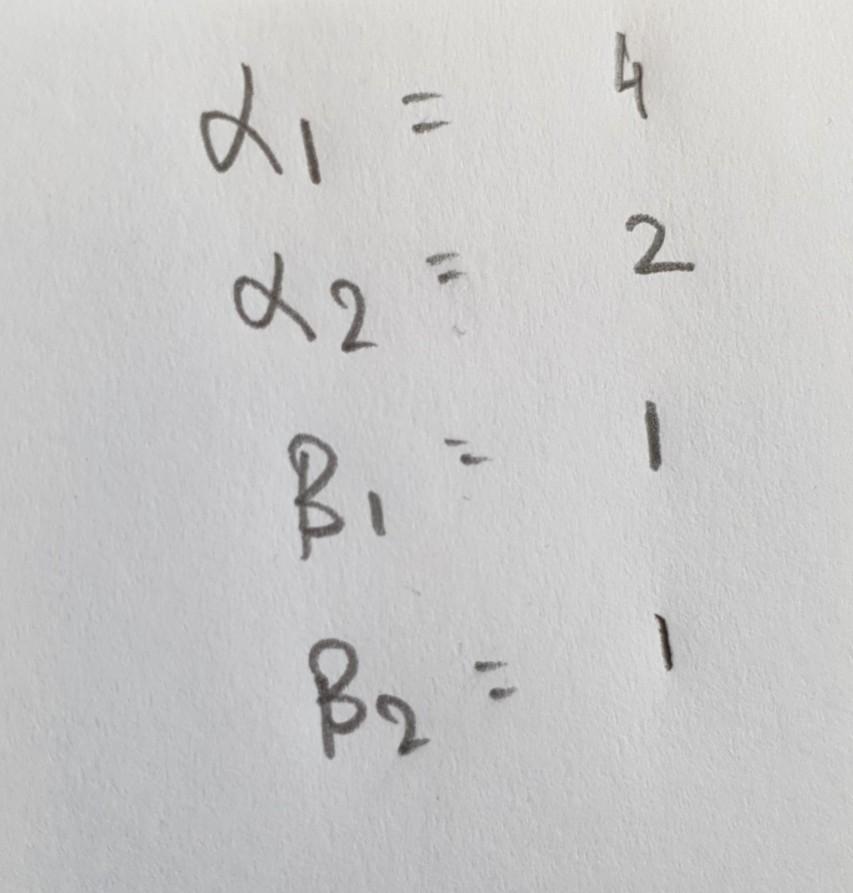 α1 = 4
α2 = 2
β1 = 1
β2 = 1